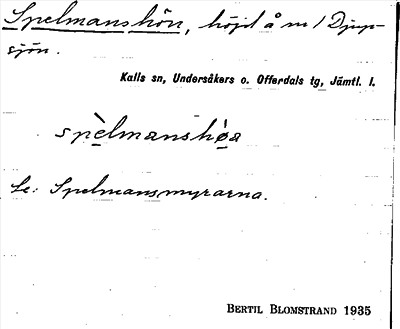 Spelmanshön, höjd å m / Djup-
sjön.
Kalls sn, Undersåkers o. Offerdals tg, Jämtl. l.
spèlmanshø̀a
Se: Spelmansmyrarna.
BERTIL BLOMSTRAND 1935